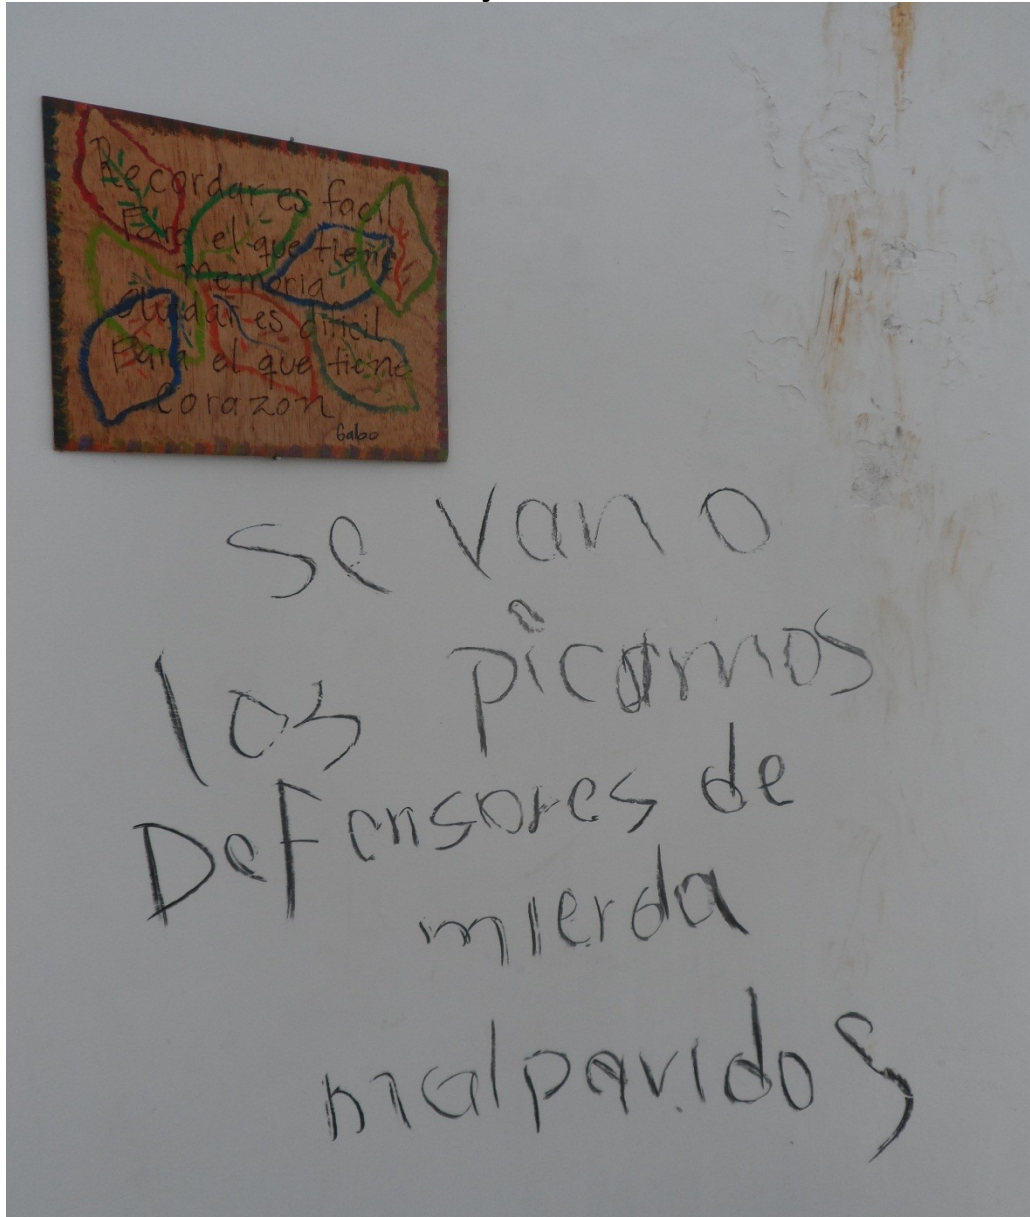 Recordar es facil
Para el que tiene
memoria
olvidar es dificil
Para el que tiene
Corazon
Gabo
se van o
los picamos
Defensores de
mierda
malparidos